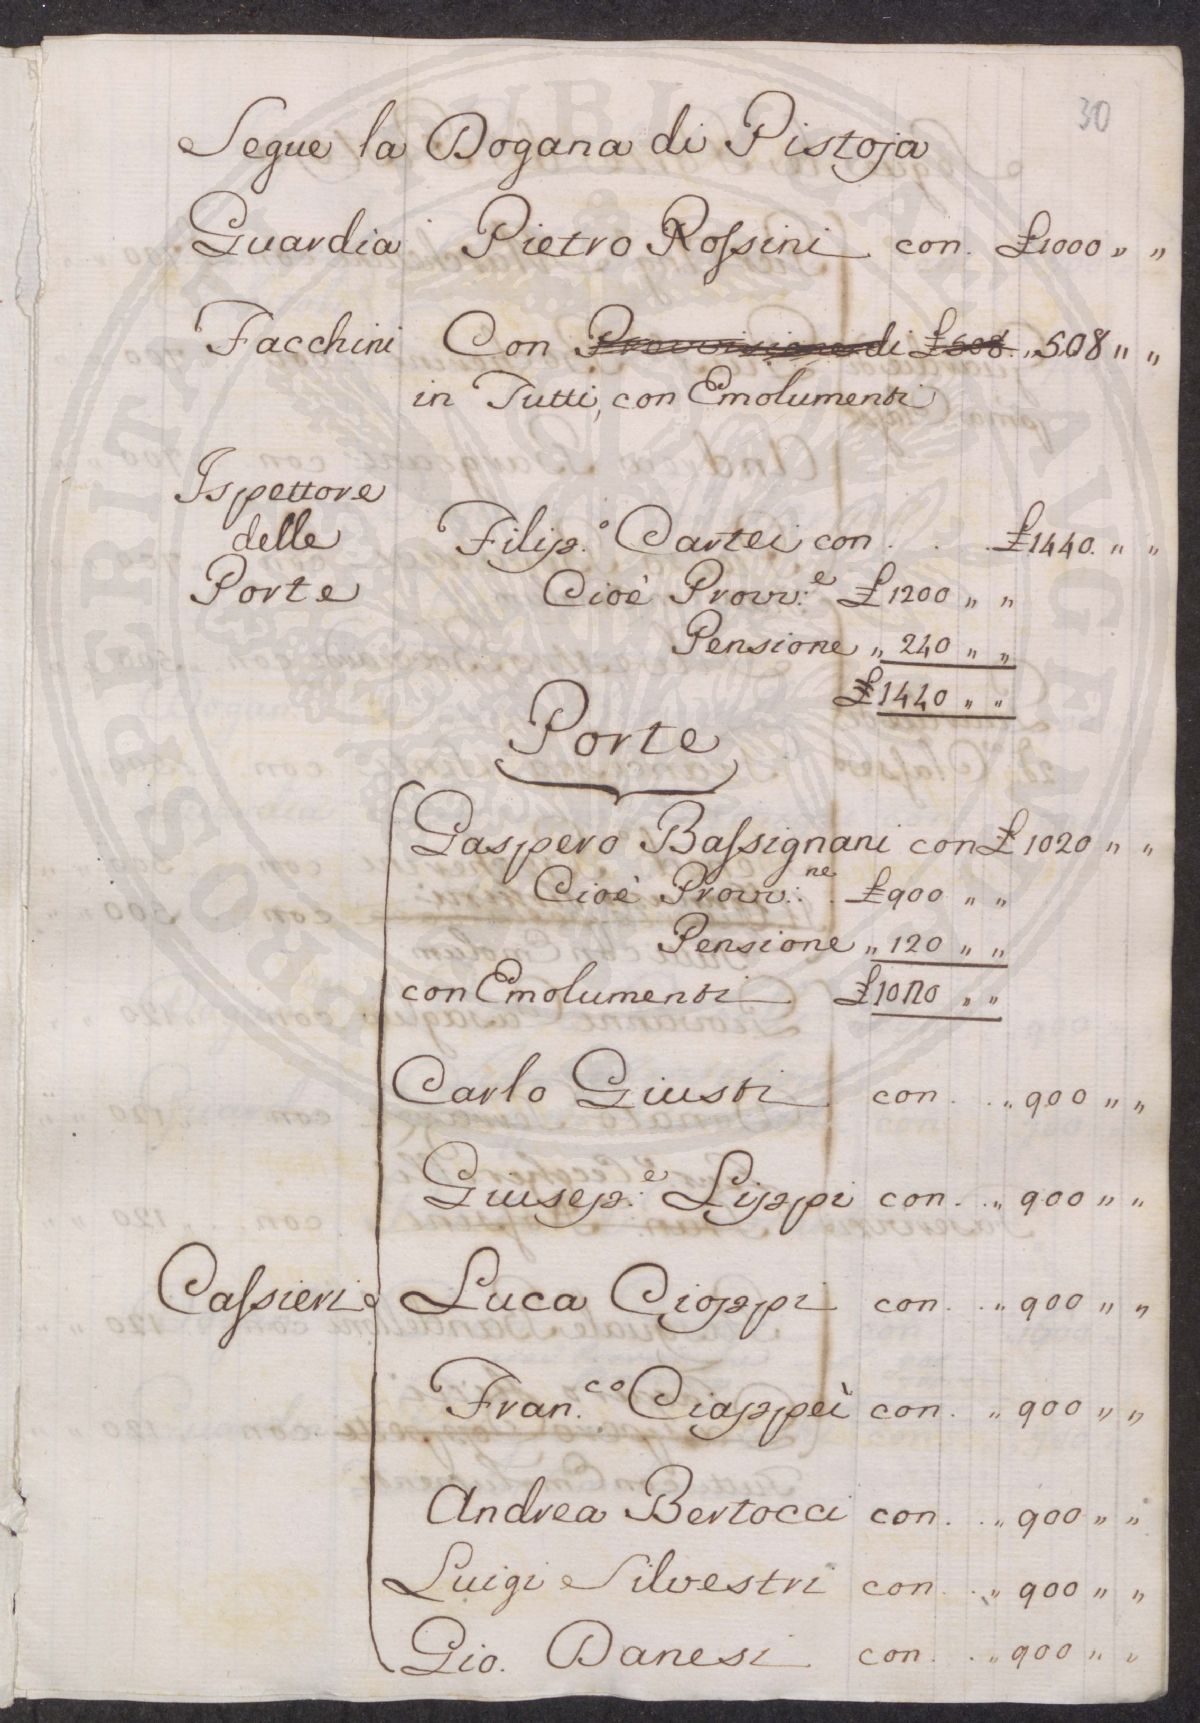 30
Segue la Dogana di Pistoja
Guardia Pietro Rossini con. £1000 „ „
Facchini Con Provvisione di £508. „ 508 „ „
in Tutti, con Emolumenti
Ispettore
delle
Porte
Filip.o Cartei con . . . £1440. „ „
Cioè Provv:e £1200 „ „
Pensione „ 240 „ „
£1440 „ „
Porte
Gaspero Bassignani con £1020 „ „
Cioè Provv:ne £900 „ „
Pensione „ 120 „ „
con Emolumenti £1020 „ „
Carlo Giusti con . . „ 900 „ „
Giusep:e Lippi con . . „ 900 „ „
Cassieri Luca Cioppi con . . „ 900 „ „
Fran.co Ciappei con . „ 900 „ „
Andrea Bertocci con . . „ 900 „ „
Luigi Silvestri con . . „ 900 „ „
Gio. Danesi con . . „ 900 „ „